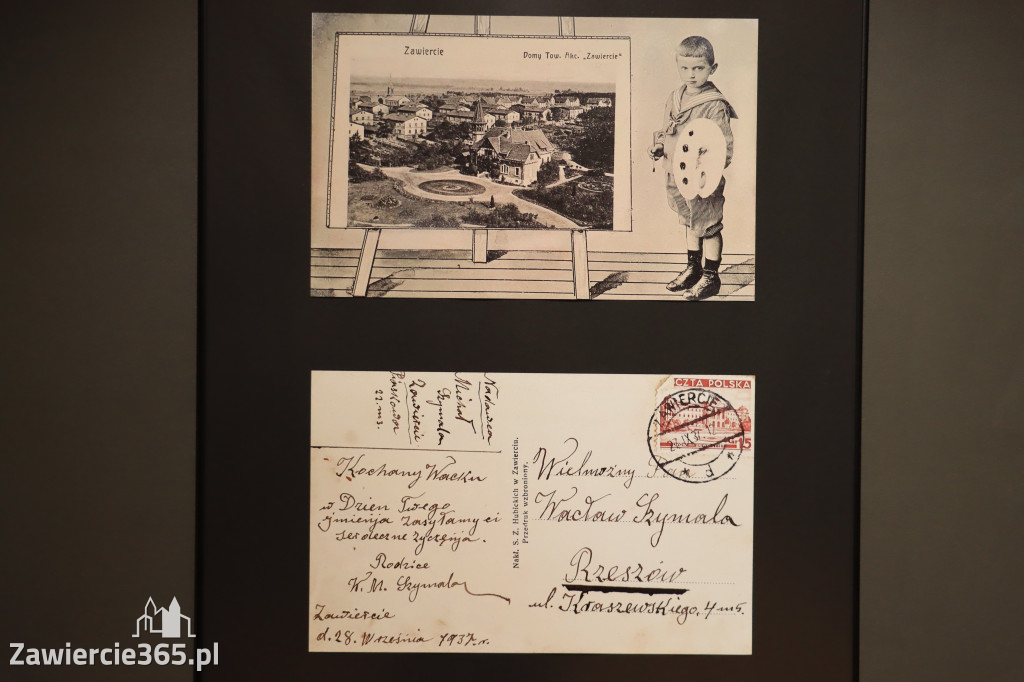 Zawiercie
Domy Tow. Akc. „Zawiercie"
Nadawca
Michał
Szymala
Zawiercie
22. m 3.
Nakł. S. Z. Hubickich w Zawierciu.
Przedruk wzbroniony.
CZTA POLSKA
ZAWIERCIE
15
Kochany Wacku
w Dzień Twego
zasyłamy ci
serdeczne
Rodzice
W. M. Szymala
Zawiercie
d. 28. Września 1937. r.
Wielmożny Pan
Wacław Szymala
Rzeszów
ul. Kraszewskiego, 4 m 5.
Zawiercie365.pl